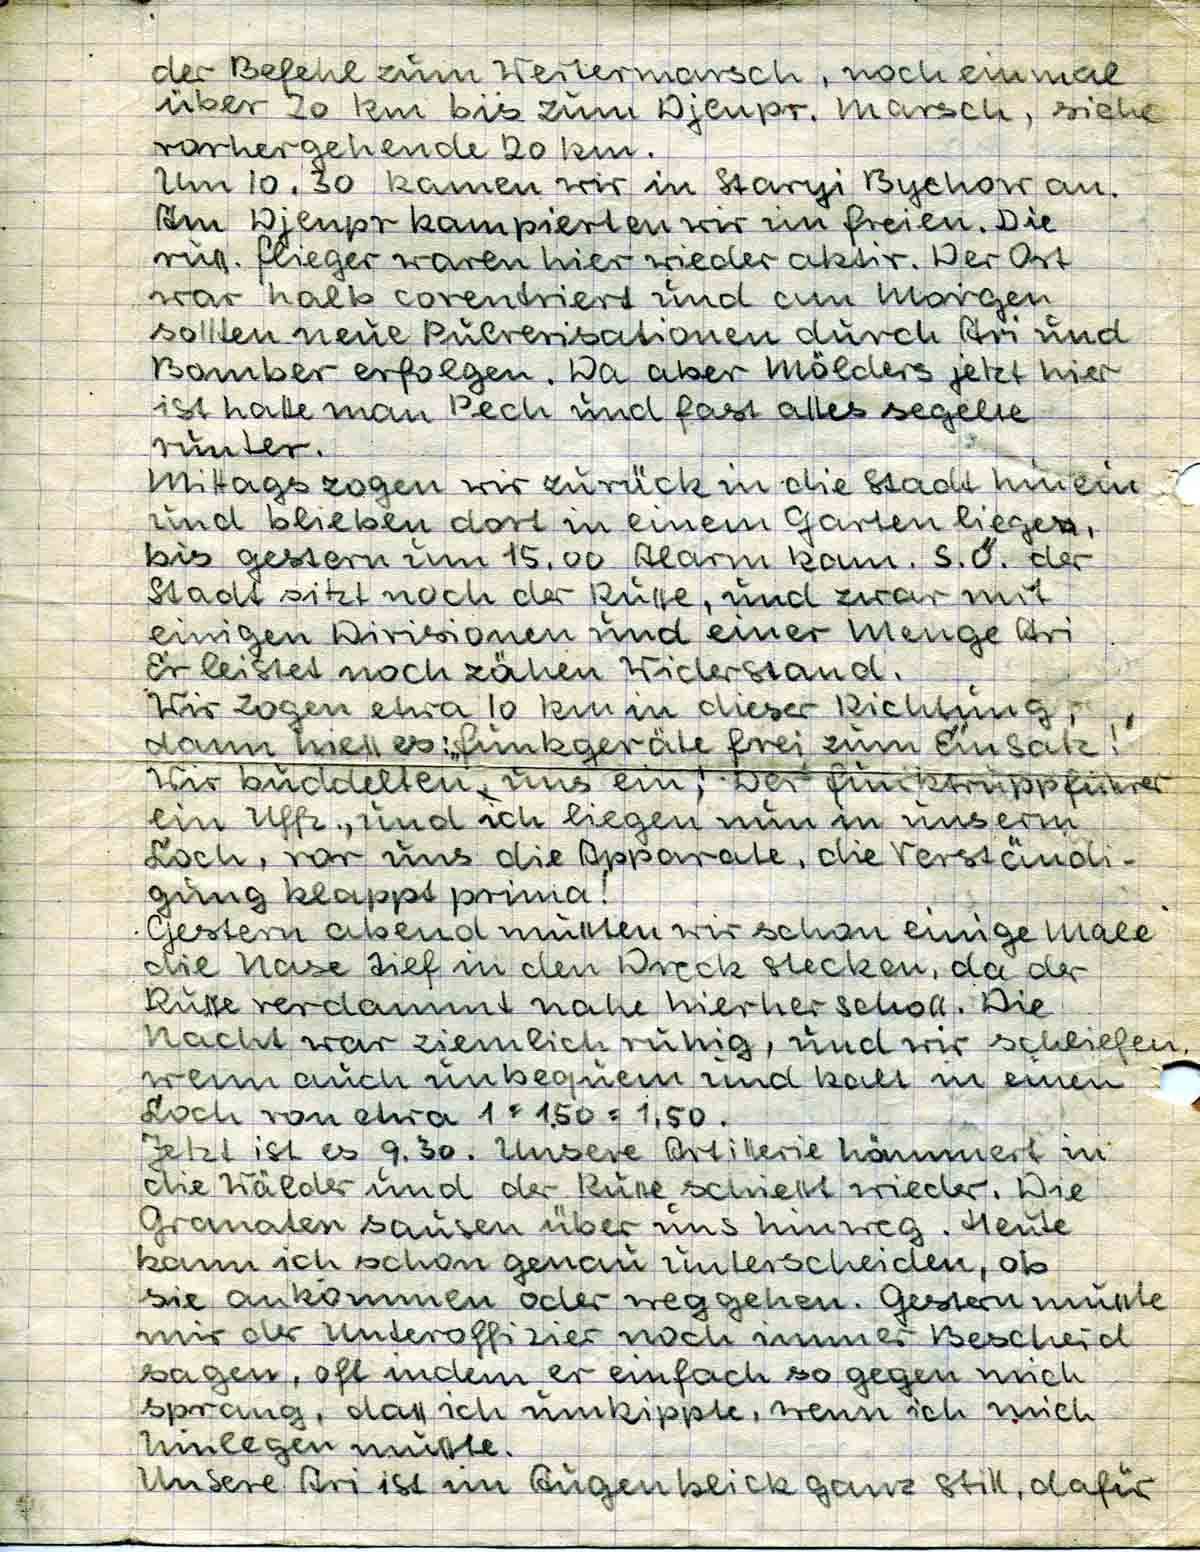 der Befehl zum Weitermarsch, noch einmal
über 20 km bis zum Djenpr. Marsch, siehe
vorhergehende 20 km.
Um 10.30 kamen wir in Staryi Bychow an.
Am Djenpr kampierten wir im freien. Die
russ. Flieger waren hier wieder aktiv. Der Ort
war halb coventriert und am Morgen
sollten neue Pulverisationen durch Ari und
Bomber erfolgen. Da aber Mölders jetzt hier
ist hatte man Pech und fast alles segelte
runter.
Mittags zogen wir zurück in die Stadt hinein
und blieben dort in einem Garten liegen,
bis gestern um 15.00 Alarm kam. S.O. der
Stadt sitzt noch der Russe, und zwar mit
einigen Divisionen und einer Menge Ari
Er leistet noch zähen Widerstand.
Wir zogen etwa 10 km in dieser Richtung,
dann hiess es: „Funkgeräte frei zum Einsatz!"
Wir buddelten uns ein! Der Funktruppführer
ein Uffz., und ich liegen nun in unserm
Loch, vor uns die Apparate, die Verständi-
gung klappt prima!
Gestern abend mussten wir schon einige Male
die Nase tief in den Dreck stecken, da der
Russe verdammt nahe hierher schoss. Die
Nacht war ziemlich ruhig, und wir schliefen,
wenn auch unbequem und kalt in einen
Loch von etwa 1 = 1,50 = 1,50.
Jetzt ist es 9.30. Unsere Artillerie hämmert in
die Wälder und der Russe schiesst wieder. Die
Granaten sausen über uns hinweg. Heute
kann ich schon genau unterscheiden, ob
sie ankommen oder weggehen. Gestern musste
mir der Unteroffizier noch immer Bescheid
sagen, oft indem er einfach so gegen mich
sprang, dass ich umkippte, wenn ich mich
hinlegen musste.
Unsere Ari ist im Augenblick ganz still, dafür